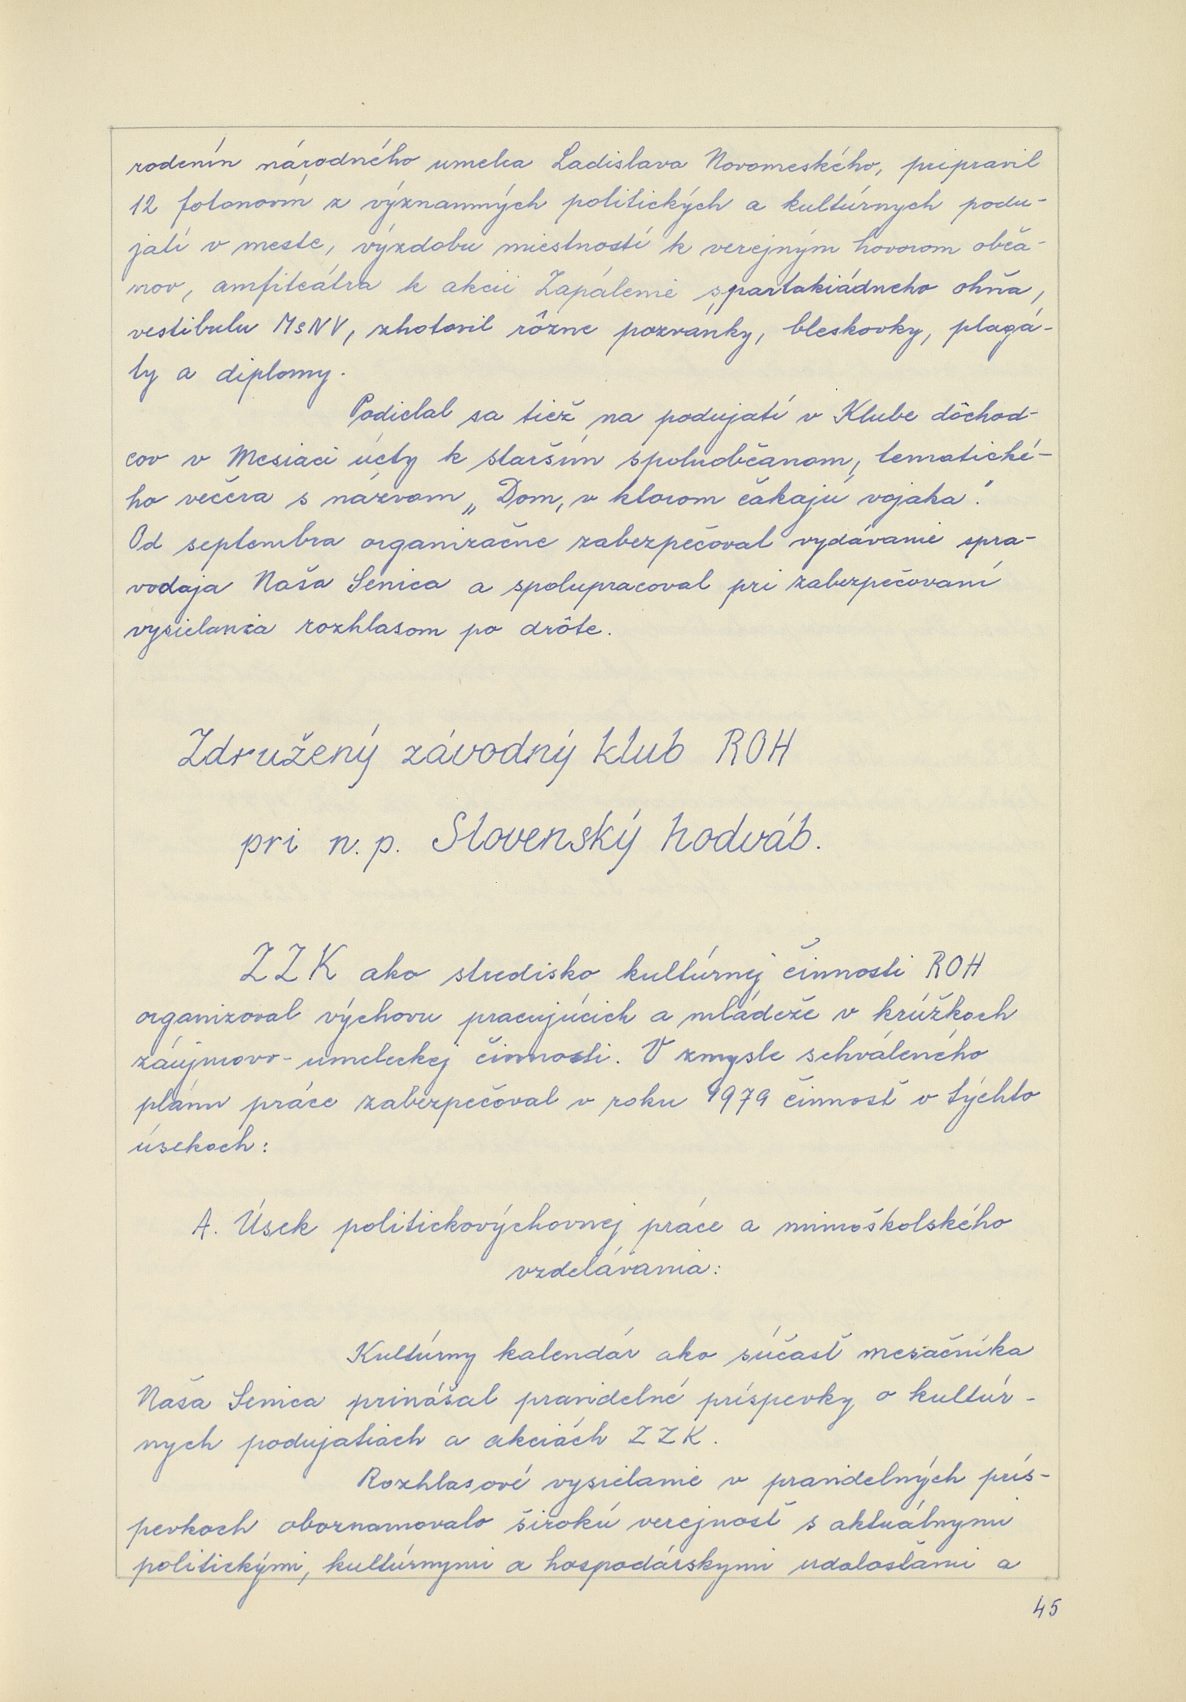 rodenín národného umelca Ladislava Novomeského, pripravil
12 fotonovín z významných politických a kultúrnych podu-
jatí v meste, výzdobu miestností k verejným hovorom obča-
nov, amfiteátra k akcii Zapálenie spartakiádneho ohňa,
vestibulu MsNV, zhotovil rôzne pozvánky, bleskovky, plagá-
ty a diplomy.
Podielal sa tiež na podujatí v Klube dôchod-
cov v Mesiaci úcty k starším spoluobčanom, tematické-
ho večera s názvom „Dom, v ktorom čakajú vojaka".
Od septembra organizačne zabezpečoval vydávanie spra-
vodaja Naša Senica a spolupracoval pri zabezpečovaní
vysielania rozhlasom po drôte.
Združený závodný klub ROH
pri n. p. Slovenský hodváb.
ZZK ako stredisko kultúrnej činnosti ROH
organizoval výchovu pracujúcich a mládeže v krúžkoch
záujmovo-umeleckej činnosti. V zmysle schváleného
plánu práce zabezpečoval v roku 1979 činnosť v týchto
úsekoch:
A. Úsek politickovýchovnej práce a mimoškolského
vzdelávania:
Kultúrny kalendár ako súčasť mesačníka
Naša Senica prinášal pravidelné príspevky o kultúr-
nych podujatiach a akciách ZZK.
Rozhlasové vysielanie v pravidelných prís-
pevkoch oboznamovalo širokú verejnosť s aktuálnymi
politickými, kultúrnymi a hospodárskymi udalosťami a
45